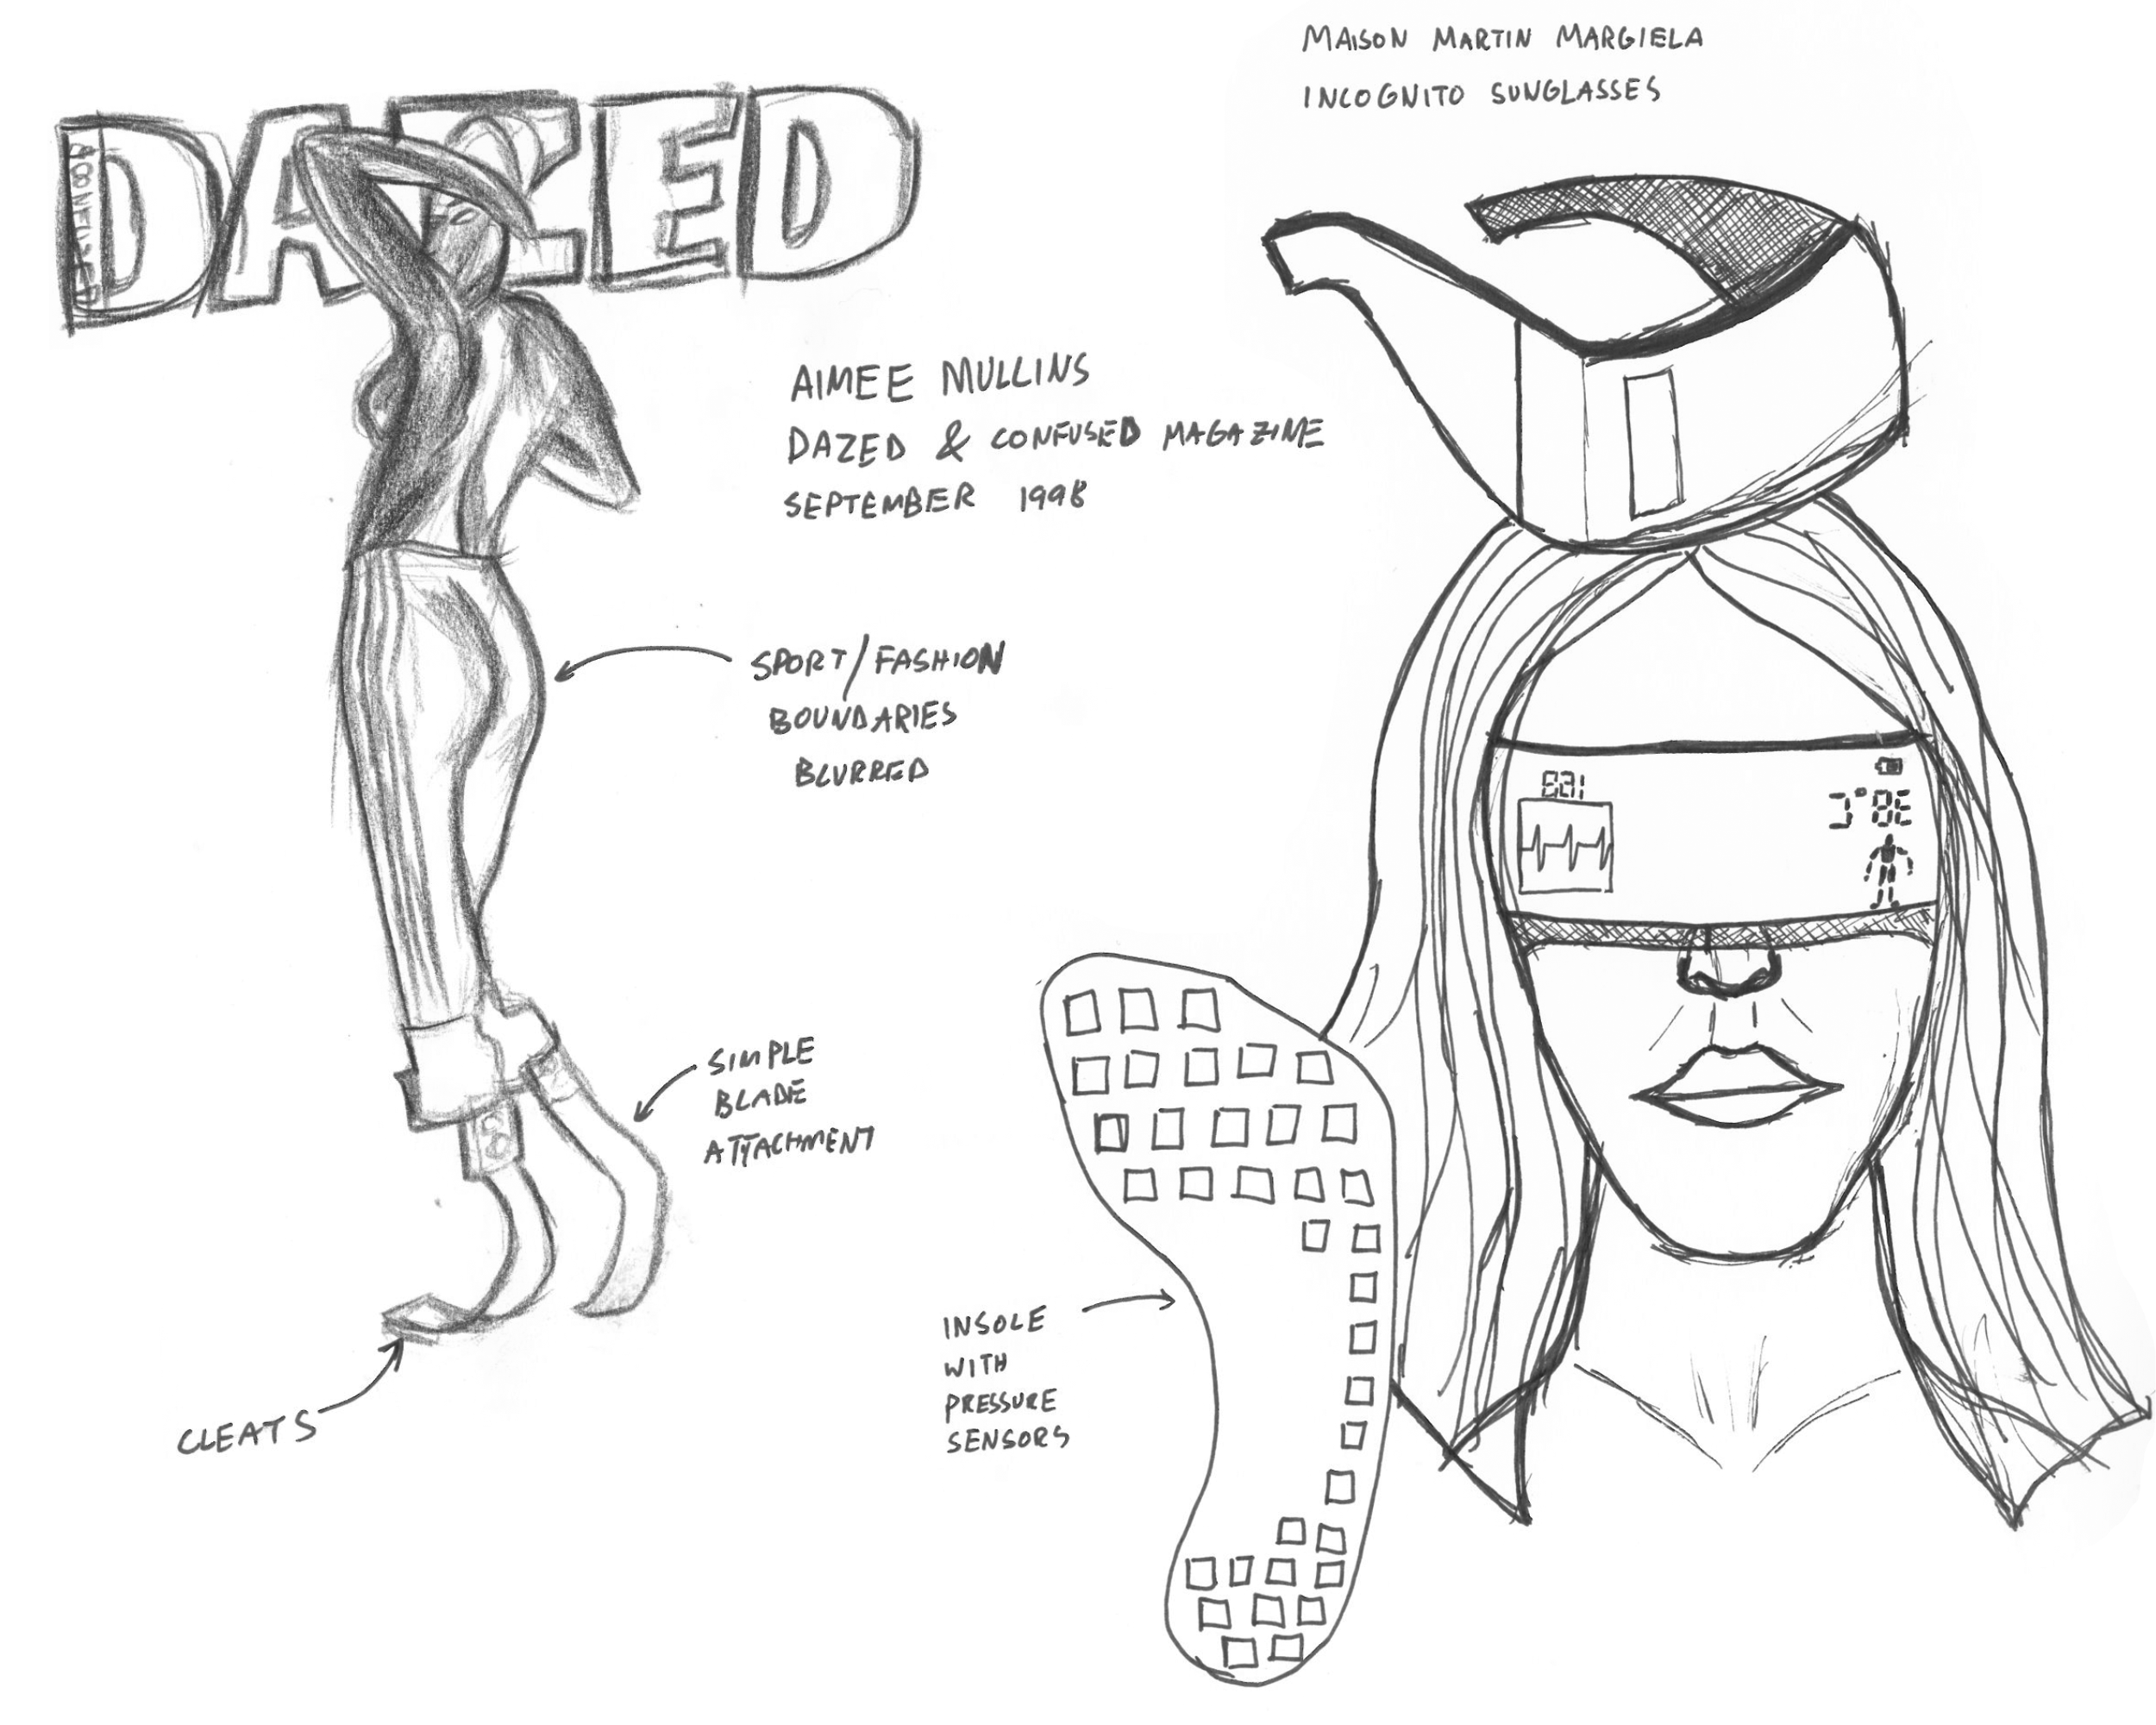 DAZED
& CONFUSED
AIMEE MULLINS
DAZED & CONFUSED MAGAZINE
SEPTEMBER 1998
SPORT/FASHION
BOUNDARIES
BLURRED
SIMPLE
BLADE
ATTACHMENT
CLEATS
MAISON MARTIN MARGIELA
INCOGNITO SUNGLASSES
38°C
INSOLE
WITH
PRESSURE
SENSORS